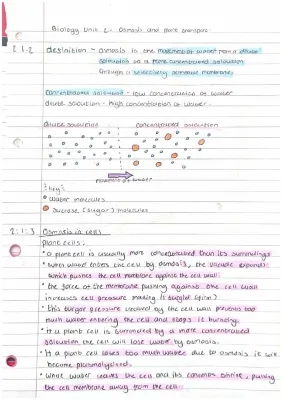 Biology Unit 2 - Osmosis and more transport
2.1.2 definition - Osmosis is the movement of water from a dilute
solution to a more concentrated solution
through a selectively permeable membrane.
concentrated solution - low concentration of water
dilute solution - high concentration of water.
dilute solution concentrated solution
movement of water
key:
water molecules
sucrose (sugar) molecules
2.1.3 Osmosis in cells
plant cells:
• a plant cell is usually more concentrated than its surroundings
• when water enters the cell by osmosis, the vacuole expands
which pushes the cell membrane against the cell wall.
• the force of the membrane pushing against the cell wall
increases cell pressure making it turgid (firm)
• this turgor pressure created by the cell wall prevents too
much water entering the cell and stops it bursting.
• If a plant cell is surrounded by a more concentrated
solution the cell will lose water by osmosis.
• If a plant cell loses too much water due to osmosis it will
become
• While water leaves the cell and its contents shrink, pulling
the cell membrane away from the cell